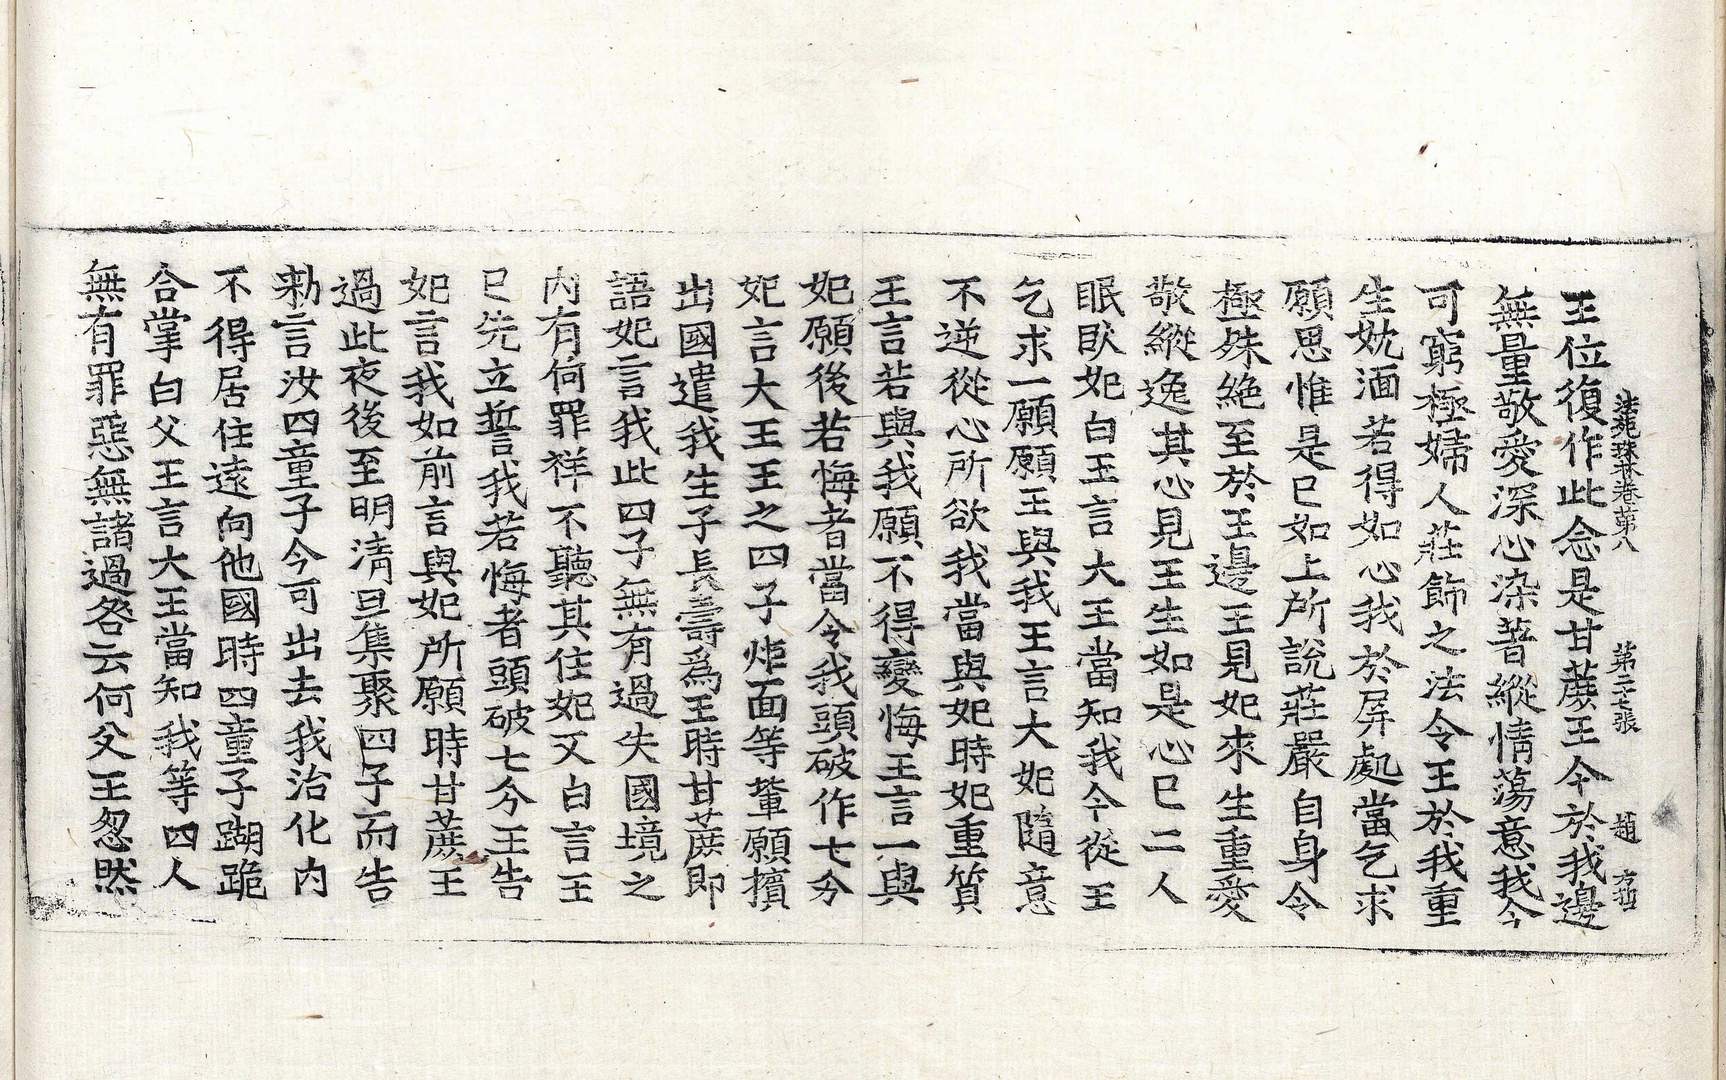 法苑珠林卷第八 第二十七張 趙
王位復作此念是甘蔗王今於我邊
無量敬愛深心染著縱情蕩意我今
可窮極婦人莊飾之法令王於我重
生躭湎若得如心我於屏處當乞求
願思惟是已如上所說莊嚴自身令
極殊絶至於王邊王見妃來生重愛
敬縱逸其心見王生如是心已二人
眠卧妃白王言大王當知我今從王
乞求一願願王與我王言大妃隨意
不逆從心所欲我當與妃時妃重質
王言若與我願不得變悔王言一與
妃願後若悔者當令我頭破作七分
妃言大王王之四子炬面等輩願擯
出國遣我生子長壽爲王時甘蔗即
語妃言我此四子無有過失國境之
内有何罪祥不聽其住妃又白言王
已先立誓我若悔者頭破七分王告
妃言我如前言與妃所願時甘蔗王
過此夜後至明清旦集聚四子而告
勑言汝四童子今可出去我治化内
不得居住遠向他國時四童子蹴跪
合掌白父王言大王當知我等四人
無有罪惡無諸過咎云何父王忽然